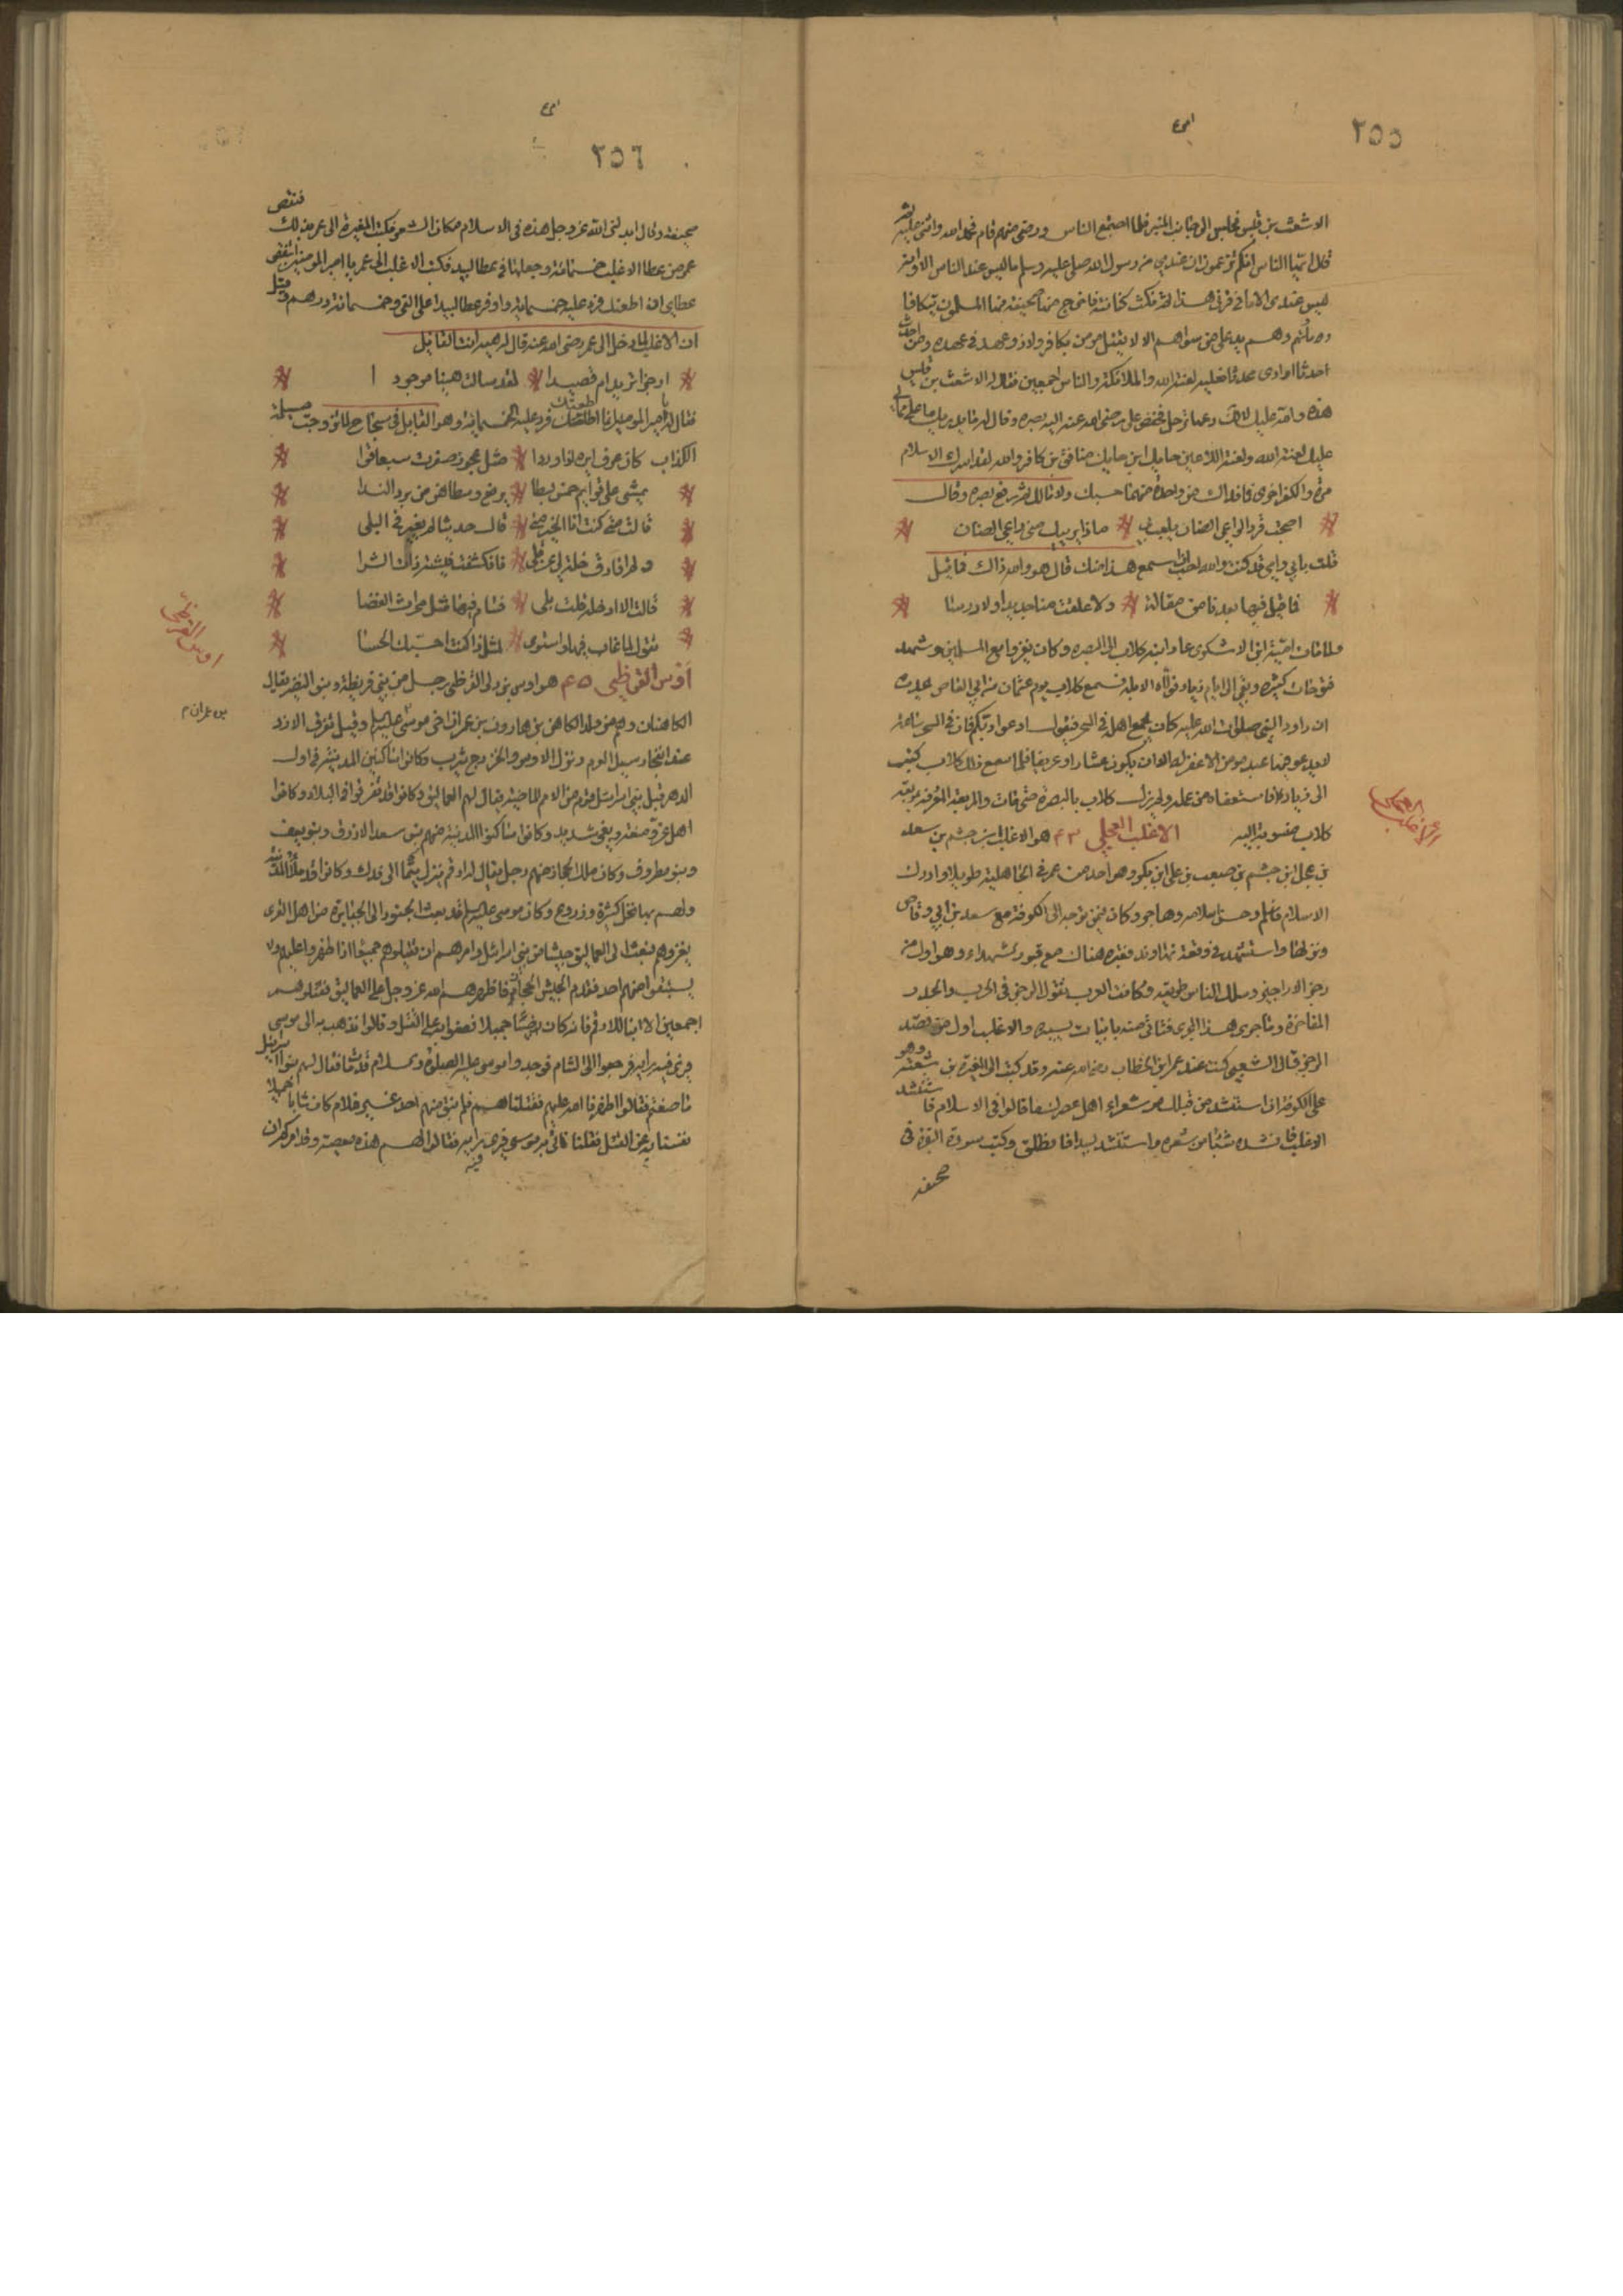 ٢٥٥
الاشعث بن قيس فجلس الى جانب المنبر فلما اجتمع الناس ورضى منهم قام فحمد الله واثنى عليه ثم
قال ايها الناس انكم تزعمون ان عندي من رسول الله صلى عليه وسلم ما ليس عند الناس الا وانه
ليس عندى الا ما في قرنى هذا ثم نكث كنانته فاخرج منها صحيفة فيها المسلمون تتكافا
دماؤهم وهم يد على من سواهم الا لا يقتل مومن بكافر ولا ذو عهد في عهده ومن احدث
حدثا او اوى محدثا فعليه لعنة الله والملائكة والناس اجمعين فقال له الاشعث بن قيس
هذه والله عليك لا لك دعها ترحل فخفض على رضى الله عنه اليه بصره وقال له ما يدريك ما على مما لى
عليك لعنة الله ولعنة اللاعنين حايك ابن حايك منافق بن كافر والله لقد اسرك الاسلام
مرة والكفر اخرى فما فداك من واحدة منهما حسبك ولا مالك ثم رفع بصره وقال
اصبحت فردا لراعى الضان يلعب بي ماذا يريبك منى راعى الضان
قلت بابي وامي قد كنت والله احب ان اسمع هذا منك قال هو والله ذاك قايل
فما قيل فيها بعدنا من مقالة ولا علقت منا جديدا ولا درسا
ولما مات امية بن الاشكرى عاد ابنه كلاب الى البصره وكان يغزوا مع المسلمين وشهد
فتوحات كثيره وبقي الى ايام زياد فولاه الابلة فسمع كلاب يوم عثمان بن ابي العاص يحدث
ان داود النبى صلوات الله عليه كان يجمع اهله في السحر فيقول ادعوا ربكم فان في السحر ساعة
لا يدعو فيها عبد مومن الا غفر له الا ان يكون عشارا او عريفا فلما سمع ذلك كلاب كتب
الى زياد فاستعفاه من عمله ولم يزل كلاب بالبصرة حتى مات والمربعة المعروفة بمربعة
كلاب منسوبة اليه الاغلب العجلي ٤٣ هو الاغلب بن جشم بن سعد
بن عجل ابن جشم بن صعب بن على ابن بكر وهو احد من عمر في الجاهلية طويلا وادرك
الاسلام فاسلم وحسن اسلامه وهاجر وكان فيمن توجه الى الكوفة مع سعد بن ابي وقاص
ونزلها واستشهد في وقعة نهاوند فقبره هناك مع قبور الشهداء وهو اول من
رجز الاراجيز وسلك الناس طريقه وكانت العرب تقول الرجز في الحرب والحداء
المفاخرة وما جرى هذا المجرى فتاتى منه بابيات يسيره والاغلب اول من قصد
الرجز قال الشعبى كنت عند عمر ابن الخطاب رضى الله عنه وقد كتب الى المغيرة بن شعبة وهو
على الكوفة ان استنشد من قبلك من شعراء اهل عصرك ما قالوا في الاسلام فاستنشد
الاغلب فانشده شيئا من شعره واستنشد لبيدا فانطلق وكتب سورة البقرة في
صحيفه
الاغلب
٢٥٦
صحيفة وقال ابدلنى الله عز وجل هذه في الاسلام مكان الشعر فكتب المغيرة الى عمر بذلك فنقص
عمر من عطا الاغلب خمسمائة وجعلها في عطا لبيد فكتب الاغلب الى عمر يا امير المومنين اتنقص
عطاى ان اطعتك فرد عليه خمسماية واوفر عطا لبيد على الفى وخمسمائة درهم وقيل
ان الاغلب لما دخل الى عمر رضى الله عنه قال له هيه انت القايل
ارجزا تريد ام قصيدا لقد سالت هينا موجودا
فقال يا امير المومنين انما اطعتك فرد عليه الخمسماية وهو القايل في سجاح لما تزوجت مسيلمة
الكذاب
قالت متى كنت ابا الخير متى قال حديثا لم يغير في البلى
ولم افارق خلة لي عن قلى فانكشفت فيشة ذات الشوا
قالت الا ادخله قلت بلى فشام فيها مثل محراث الغضا
تقول لما غاب فيها واستوى لمثل ذا كنت احسبك الحسا
اوس القرظى ٤٥ هو اوس بن دنى القرظى رجل من بني قريظة وبنو النضير يقال
الكاهنان وهم من ولد الكاهن بن هارون بن عمران اخى موسى عليه السلام وقيل تفرق الازد
عند انفجار سيل العرم ونزل الاوس والخزرج يثرب وكانوا ساكنين المدينة في اول
الدهر قبل بنى اسرائيل قوم من الامم الماضية يقال لهم العماليق وكانوا قد تفرقوا في البلاد وكانوا
اهل عز ومنعة وبغى شديد وكانوا ساكنوا المدينة منهم بنى سعد الازرق وبنو
وبنو مطروف وكان ملك الحجاز منهم رجل يقال له ارقم ينزل تيما الى فدك وكانوا قد ملاوا المدينة
ولهم بها نخل كثيرة وزروع وكان موسى عليه السلام قد بعث الجنود الى الجبابرة من اهل القرى
يغزوهم فبعث الى العماليق جيشا من بنى اسرائيل وامرهم ان يقتلوهم جميعا اذا ظهروا عليهم ولا
يستبقوا منهم احد فقدم الجيش الحجاز فاظهرهم الله عز وجل على العماليق فقتلوهم
اجمعين الا ابنا للارقم فانه كان وضيئا جميلا فضنوا به على القتل وقالوا نذهب به الى موسى
يرى فيه رايه فرجعوا الى الشام فوجدوا موسى عليه الصلوة والسلام قد مات فقال لهم بنو اسرائيل
ما صنعتم فقالوا اظهرنا الله عليهم فقتلناهم فلم يبق منهم احد غير غلام كان شابا جميلا
نفسنا به عن القتل فقلنا ناتى به موسى فيرى فيه رايه فقالوا لهم هذه معصية وقد امركم ان
اوس القرظى
بن عمران م